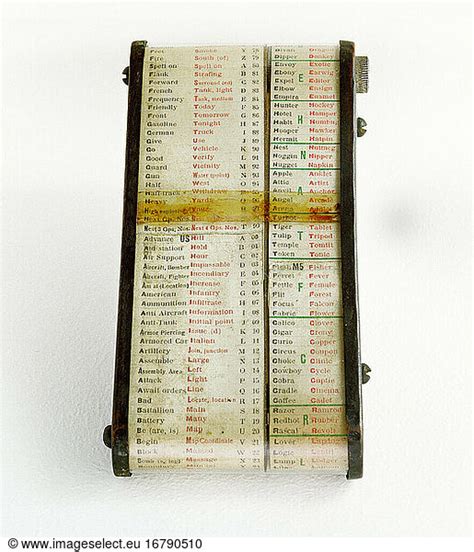 Feet Smoke Y 78 Divan Dragon
Fire South (of) Z 79 Dipper Donkey
Spell on Spell off A 80 Envoy Exotic
Flank Strafing B 81 Ebony Earwig
Forward Surround (ed) C 82 Expel E Editor
French Tank, light D 83 Elbow Ensign
Frequency Tank, medium E 84 Empire Enamel
Friendly Today F 85 Hunter Hockey
Front Tomorrow G 86 Hotel Hamper
Gasoline Tonight H 87 Habit H Humbug
German Truck I 88 Hooper Hawker
Give Use J 89 Hermit Hatpin
Go Vehicle K 90 Nest Nutmeg
Good Verify L 91 Noggin N Nipper
Guard Vicinity M 92 Nugget Napkin
Gun Water (point) N 93 Apple Anklet
Half West O 94 Antic Artist
Half-track Anvil A
Heavy Yards
Next 3 Ops. Nos. Next 4 Ops. Nos. T 99 Tiger Tablet
Advance US Hill A 00 Tulip T Tripod
Aid station Hold B 02 Temple Tomtit
Air Support Hour C 02 Token Tonic
Aircraft, Bomber Impassable D 03 M5 Fisher
Aircraft, Fighter Incendiary E 04 Ferret Fever
Am at (Location) Increase F 05 Fettle F Female
American Infantry G 06 Flit Forest
Ammunition Infiltrate H 07 Focus Factor
Anti Aircraft Information I 08 Fabric Flower
Anti-Tank Initial point J 09 Calico Clover
Armor Piercing Issue (d) K 10 Cigar Crayon
Armored Car Italian L 11 Curio Copper
Artillery Join, junction M 12 Circus Clinic
Assemble Large N 13 Choke C Candle
Assembly Area Left O 14 Cowboy Cycle
Attack Light P 15 Cobra Cuptie
Await Line Q 16 Cradle Cinema
Bad Locate, location R 17 Coffee Cadet
Battalion Main S 18 Razor Ramrod
Battery Many T 19 Redhot R Rubber
Be (are, is) Map U 20 Rascal Revolt
Begin Map Coordinate V 21 Lover
Block Message W 22 Logic
Bomb (s, ing) Message X 23 Lump L
© www.imageselect.eu 16790510